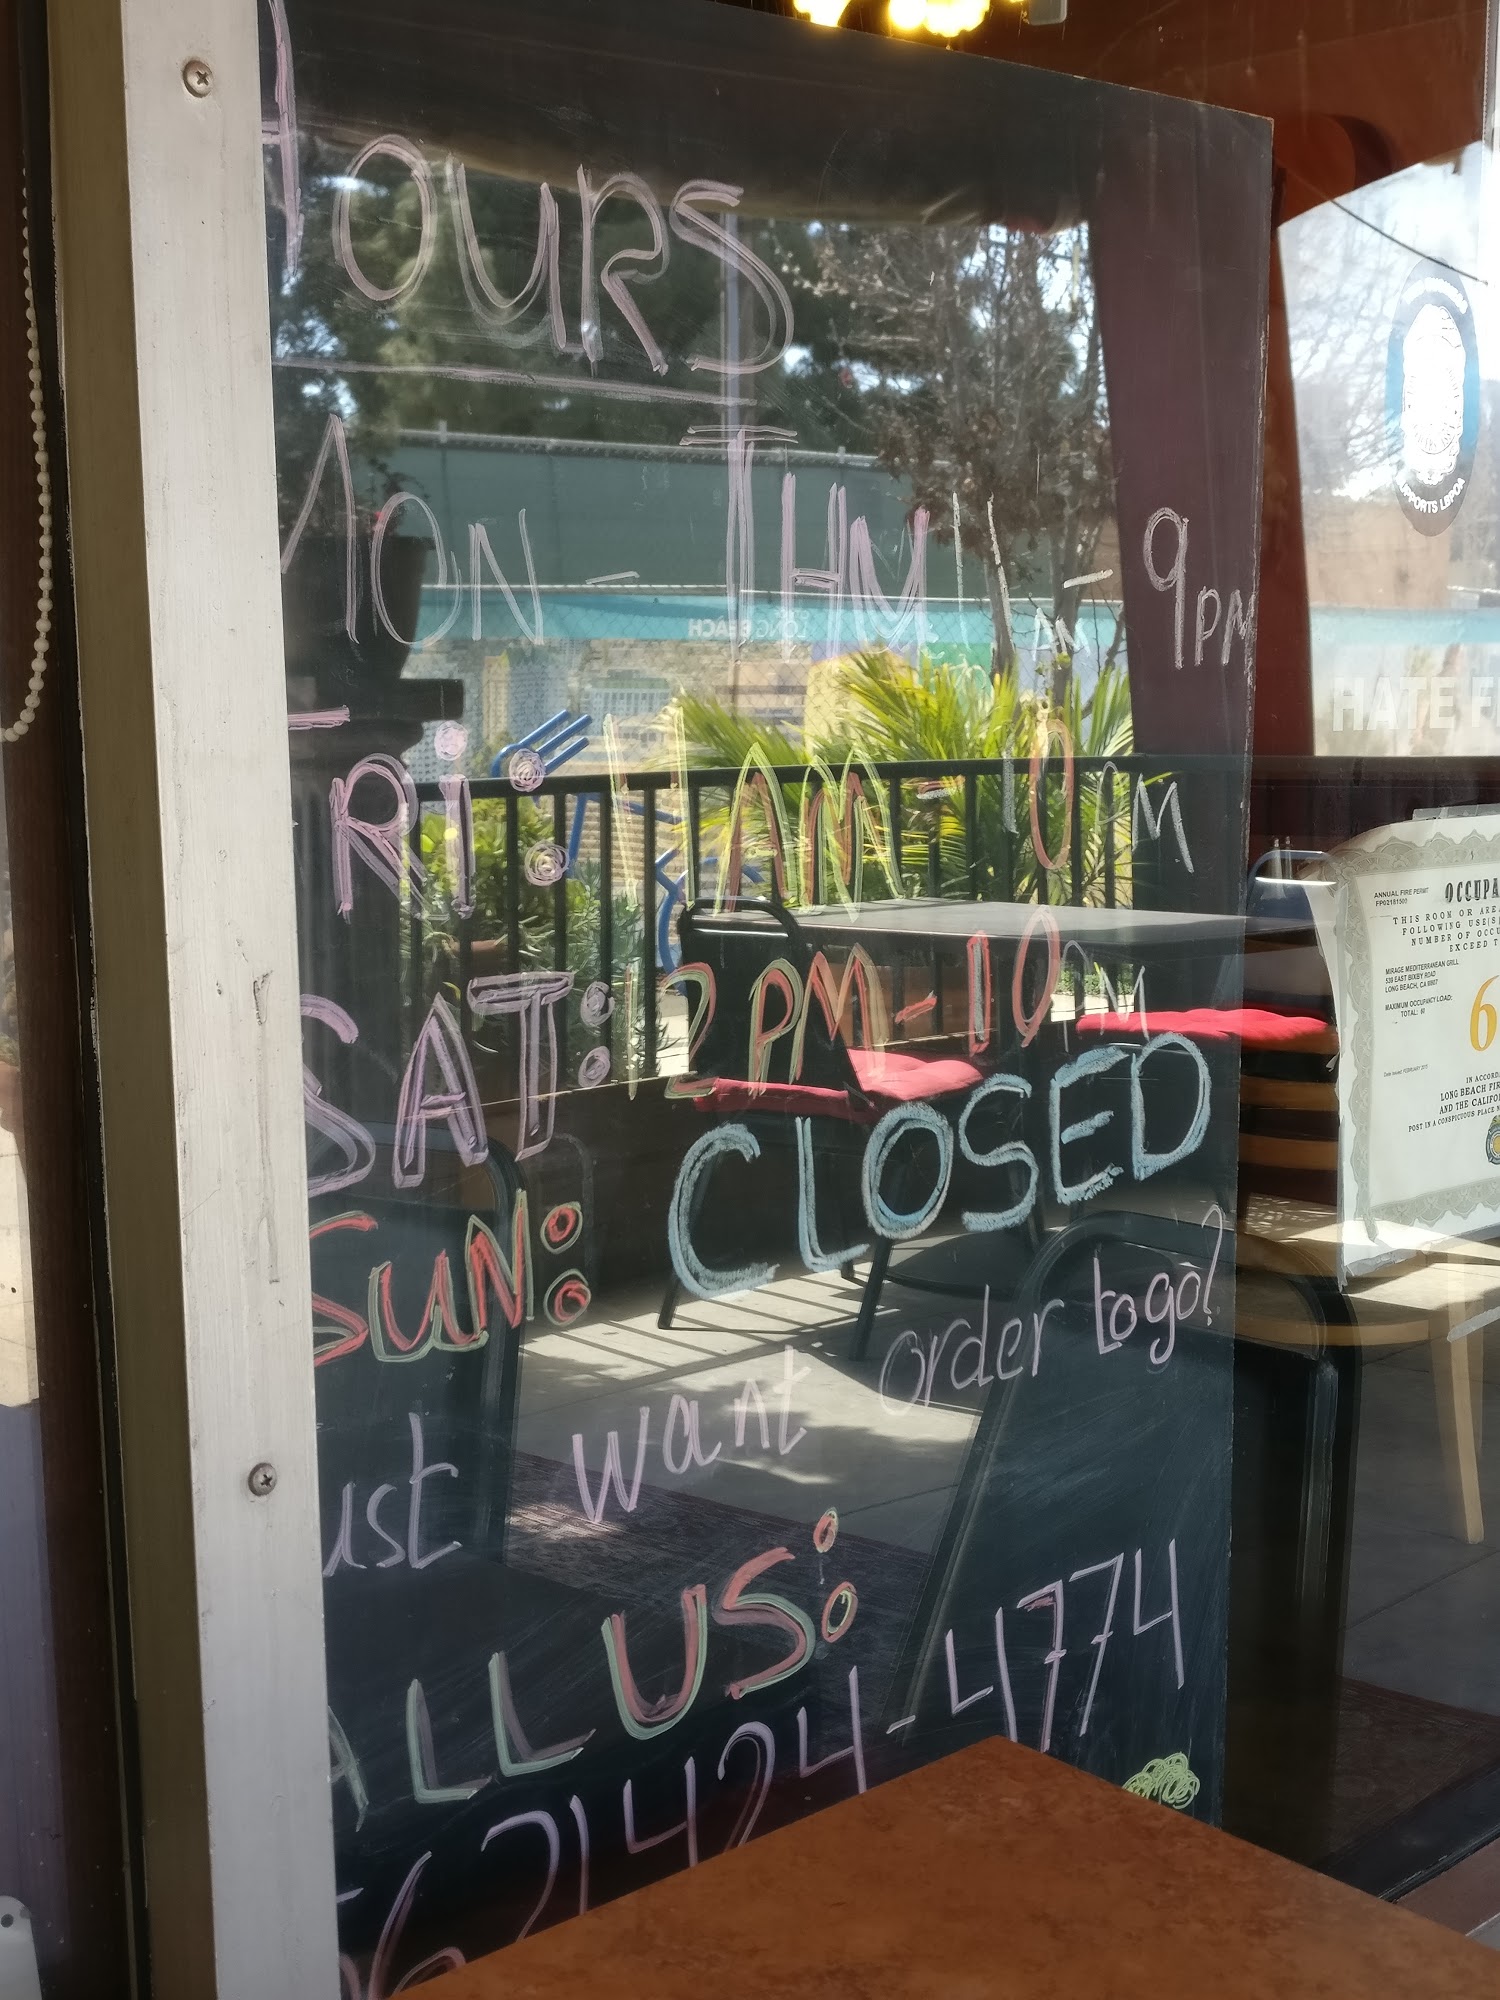 HOURS
MON - THU 11 AM - 9PM
FRi: 11AM - 10 AM
SAT: 12PM-10PM
SUN: CLOSED
ust want order to go?
ALL US:
562 1424-4774
LONG BEACH
SUPPORTS LBPOA
HATE F
ANNUAL FIRE PERMIT
FP02181500
OCCUPA
THIS ROOM OR AREA
FOLLOWING USE(S)
NUMBER OF OCCU
EXCEED T
MIRAGE MEDITERRANEAN GRILL
539 EAST BIXBY ROAD
LONG BEACH, CA 90807
MAXIMUM OCCUPANCY LOAD:
TOTAL: 60
6
Date issued: FEBRUARY 2015
IN ACCORDA
LONG BEACH FIR
AND THE CALIFO
POST IN A CONSPICUOUS PLACE N